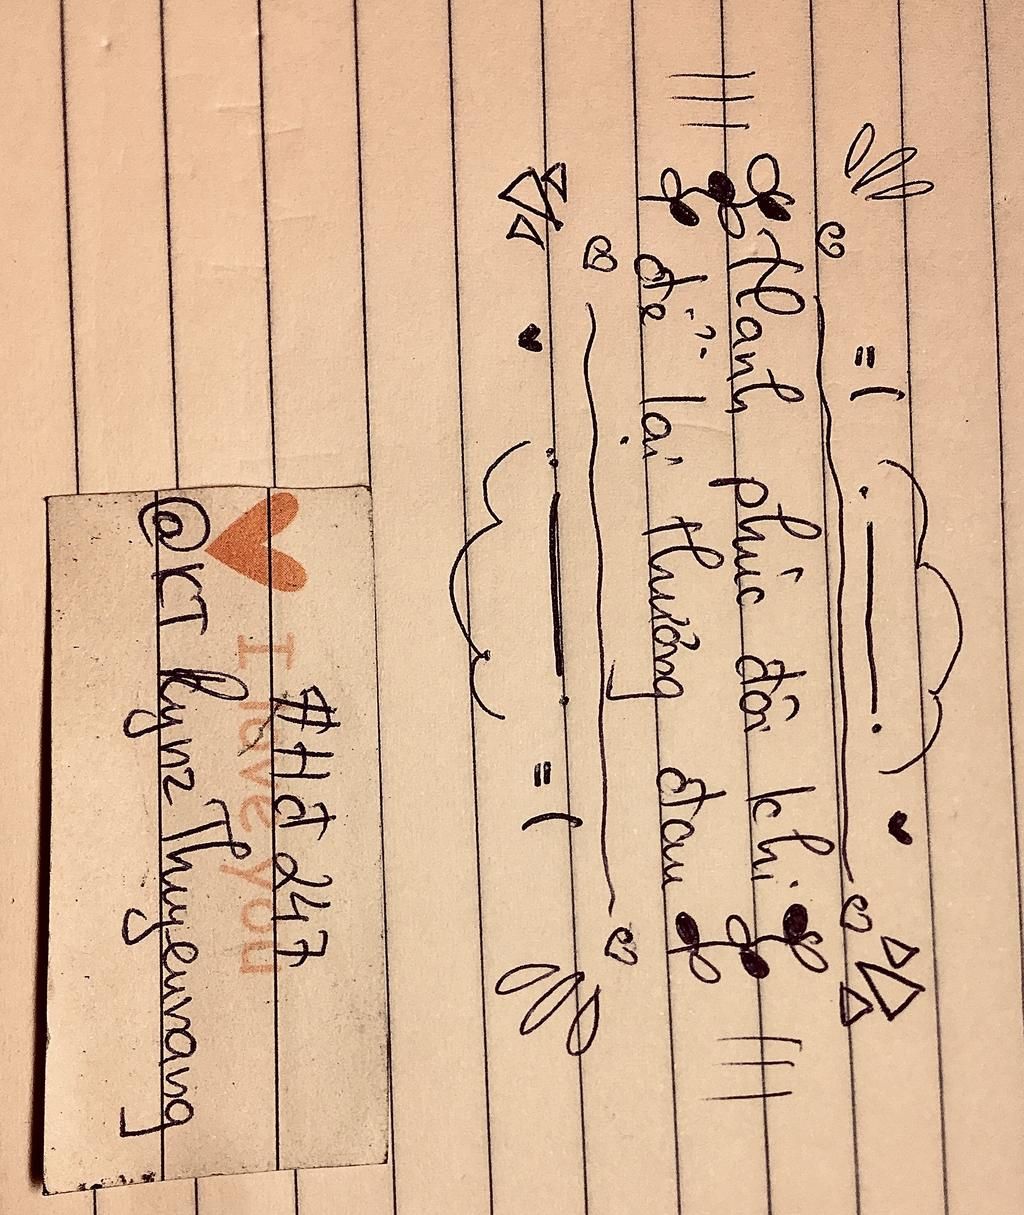 Hạnh phúc đôi khi
để lại thương đau
I love you
#Hđ 247
@KT Thuyenvang